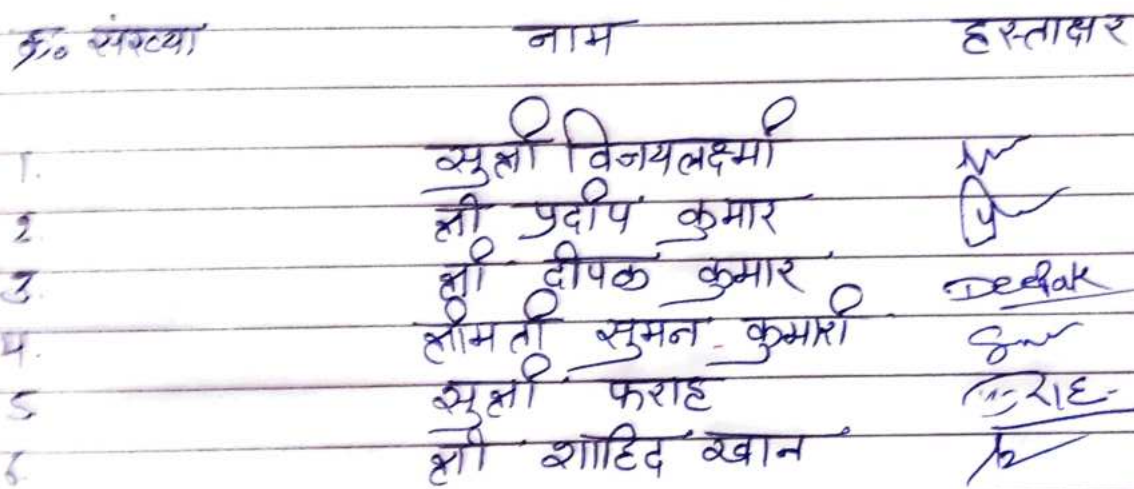 क्र० संख्या नाम हस्ताक्षर
1. सुश्री विजयलक्ष्मी
2. श्री प्रदीप कुमार
3. श्री दीपक कुमार Deepak
4. श्रीमती सुमन कुमारी
5 सुश्री फराह
6. श्री शाहिद खान